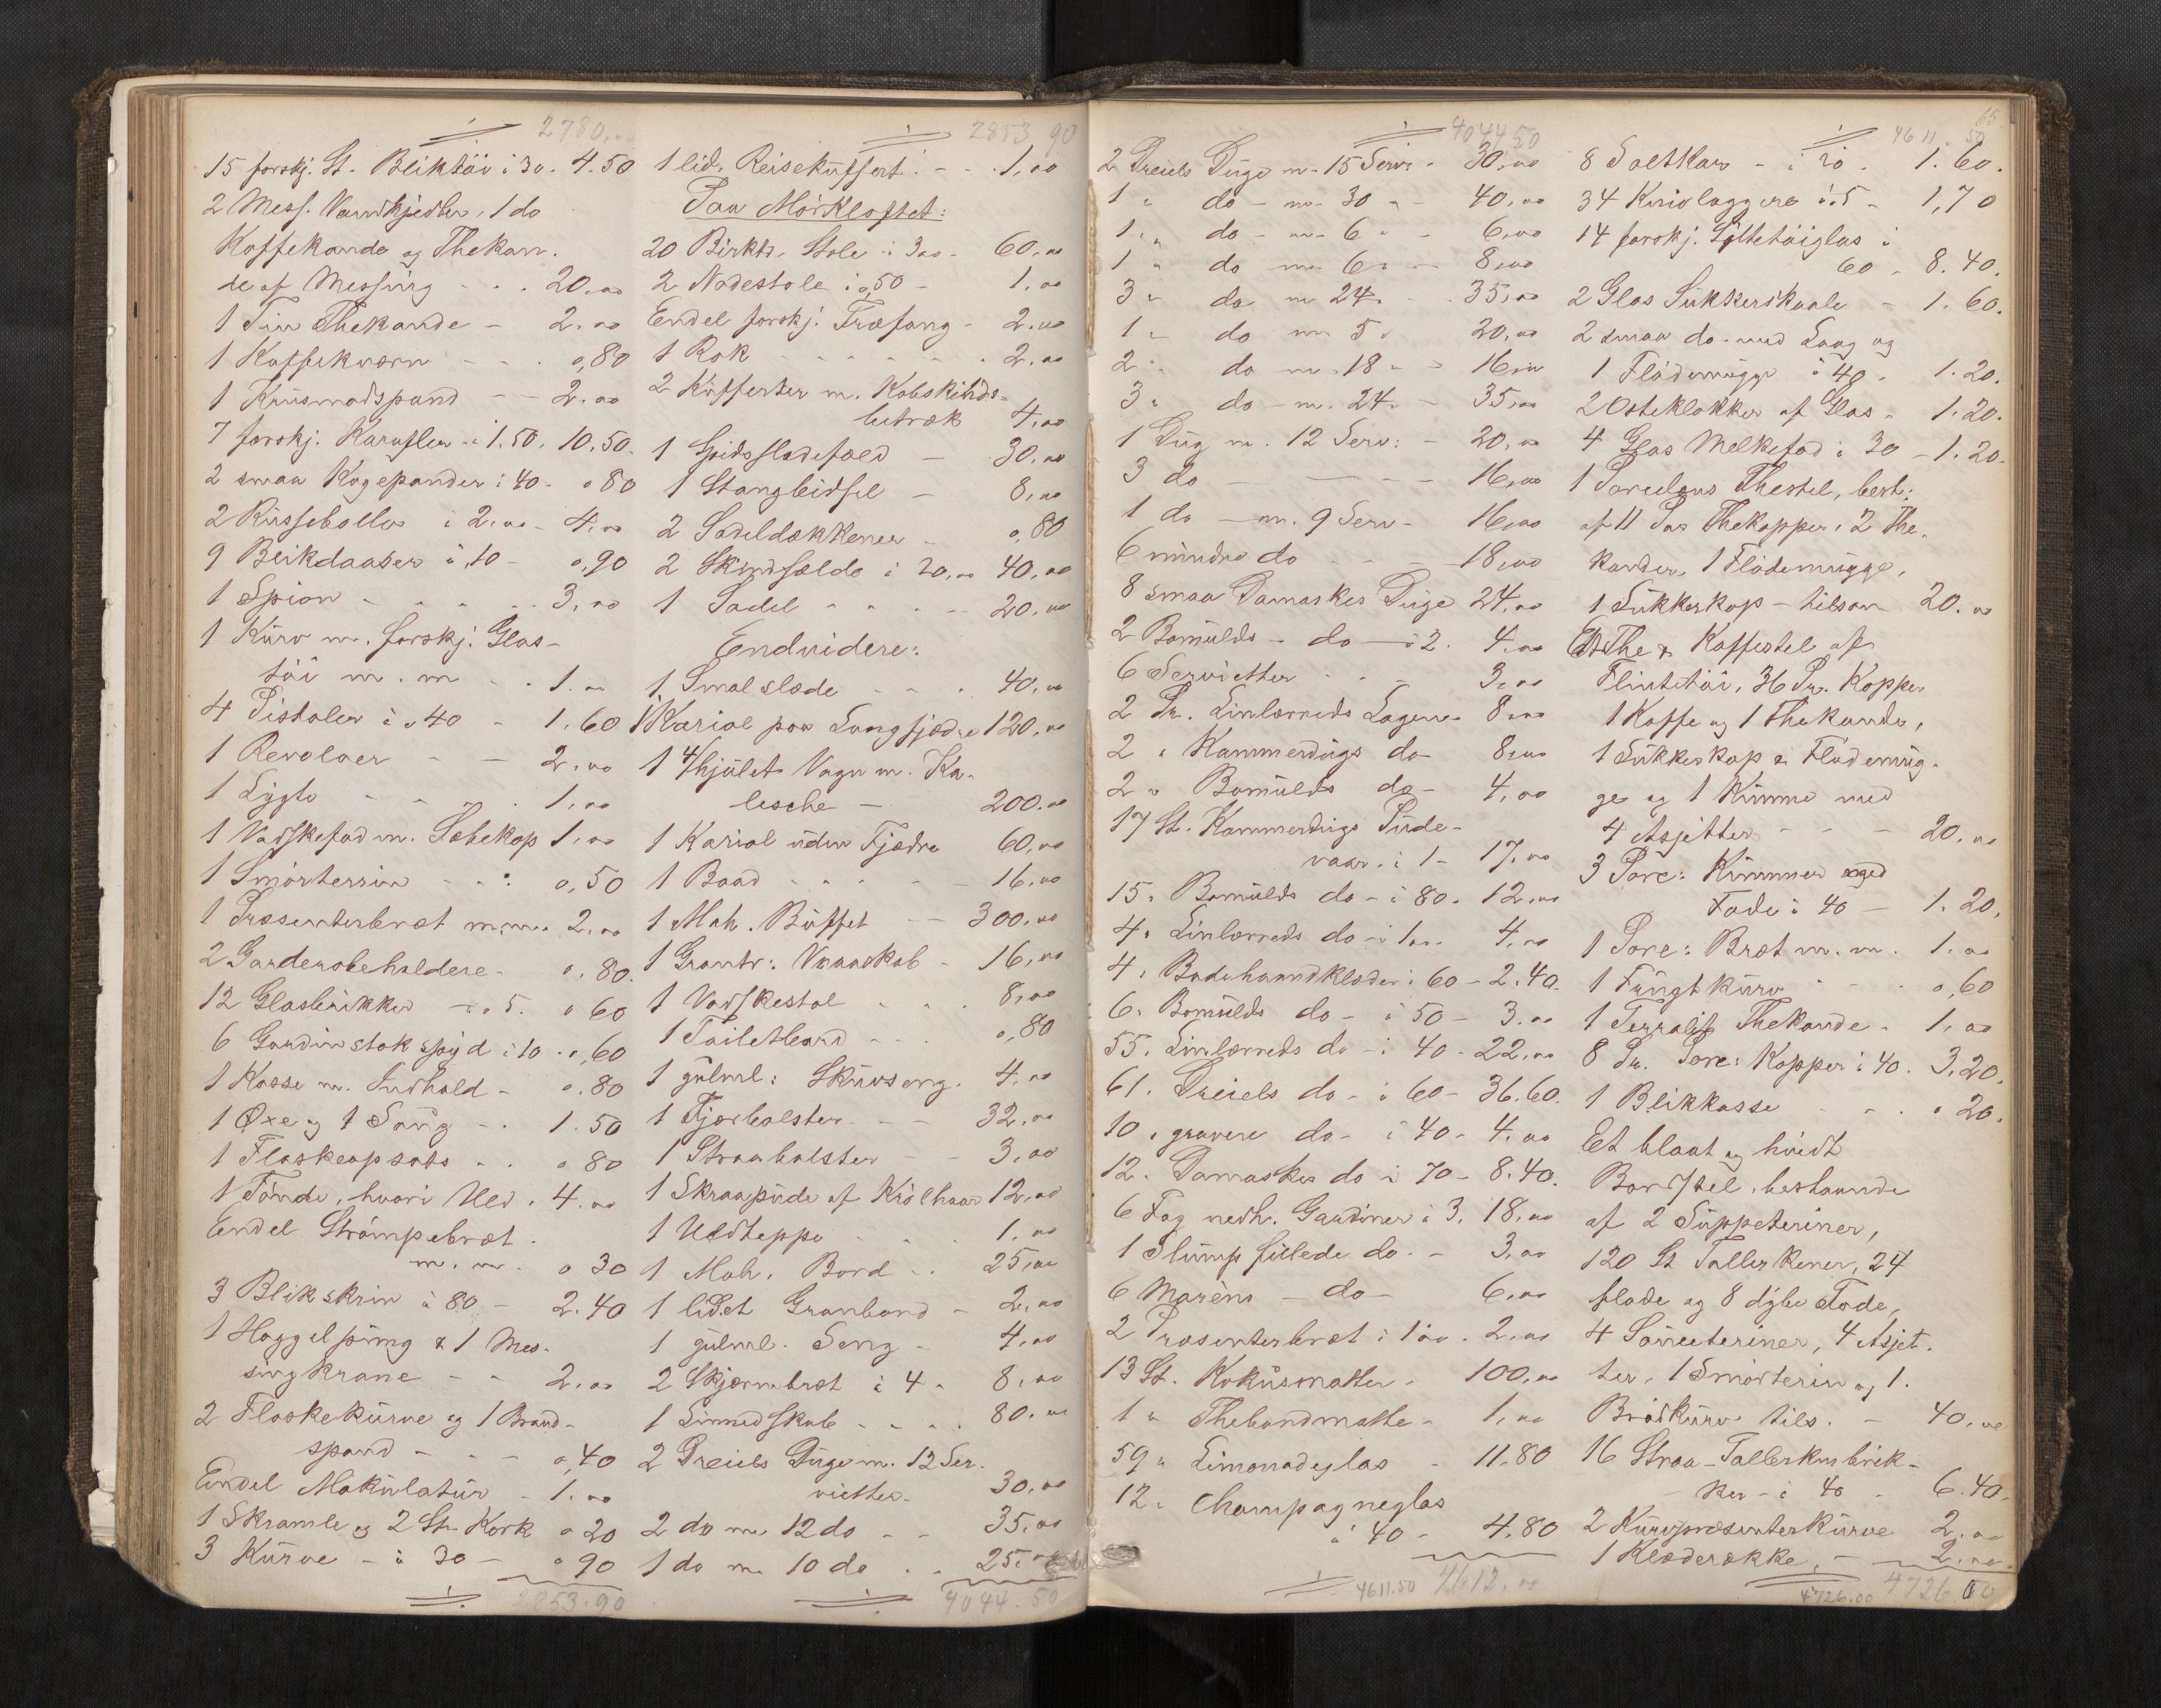 2780,00
15 forskj. St. Bliktöi à 30. 4.50
2 Mess. Vandkjedler, 1 do
Kaffekande og Thekan-
de af Messing - - - 20,00
1 Tin Thekande - 2.00
1 Kaffekværn - - - 0,80
1 Krusmadspand - - 2.00
7 forskj. Karafler à 1.50. 10.50.
2 smaa Kogepander à 40 - 0 80
2 Russeboller à 2.00 - 4,00
9 Blikdaaser à ,10 - 0,90
1 Spion - - - - 3,00
1 Kurv m. forskj. Glas-
töi m. m - - 1.00
4 Pistoler à 0 40 - 1.60
1 Revolver - - 2.00
1 Lygte - - - 1,00
1 Vadskefad m. Sæbekop 1,00
1 Smörterrin - - - 0,50
1 Præsenterbræt m.m. 2.00
2 Garderobeholdere - 0.80.
12 Glasbrikker - à 5. 0 60
6 Gardinstokspyd à 10 - 0,60
1 Kasse m. Indhold - 0.80
1 Øxe og 1 Saug - - 1.50
1 Flaskeopsats - - 0 80
1 Tönde, hvori Uld. 4.00
Endel Strömpebræt
m. m. 0 30
3 Blikskrin à 80 - 2.40
1 Haggelpung & 1 Mes-
singkrane - - 2,00
2 Flaskekurve og 1 Brand-
spand - - - 0,40
Endel Makulatur - 1.00
1 Skramle og 2 St. Kork 0 20
3 Kurve - à 30 - 0 90
2853.90
2853 90
1 lid. Reisekuffert - - 1,00
Paa Mörkloftet:
20 Birktr. Stole à 3.00 - 60,00
2 Nodestole à 0,50 - 1,00
Endel forskj. Træfang - 2.00
1 Rok - - - - - 2,00
2 Kufferter m. Kobskinds-
betræk 4,00
1 Spidsslædefæld - 30,00
1 Stangbidsel - 8,00
2 Sadeldækkener - 0,80
2 Skindfælde à 20,00 40,00
1 Sadel - - - - 20.00
Endvidere:
1 Smalslæde - - - 40,00
1 Kariol paa Langfjædre 120,00
1 4/hjulet Vogn m. Ka-
lesche - 200.00
1 Kariol uden Fjædre 60,00
1 Baad - - - - 16,00
1 Mah. Buffet - - 300,00
1 Grantr: Vraaskab - 16,00
1 Vadskestol - - - 8,00
1 Toiletbord - - - 0,80
1 gulml: Skuvseng. 4,00
1 Fjærbolster - - 32,00
1 Straabolster - - 3,00
1 Skraapude af Krölhaar 12,00
1 Uldteppe - - - 1,00
1 Mah. Bord - - 25,00
1 lidet Granbord - 2,00
1 gulml. Seng - 4,00
2 Skjærmbræt à 4 - 8,00
1 Linnedskab - - - 80.00
2 Dreiels Duge m. 12 Ser-
vietter - 30,00
2 do m. 12 do - - 35,00
1 do m. 10 do - - 25,00
4044.50
4044 50
2 Dreiels Duge m. 15 Serv. - 30,00
1 " do - m. 30 " - 40,00
1 " do - m. 6 " - 6,00
1 " do m. 6 " - 8,00
3 " do m. 24 " - 35,00
1 " do m. 5 " 20,00
2 " do m. 18 " - 16,00
3 " do - m. 24 " - 35,00
1 Dug m. 12 Serv: - 20,00
3 do - - - - 16,00
1 do - m. 9 Serv - 16,00
6 mindre do - - - 18,00
8 smaa Damaskes Duge 24,00
2 Bomulds - do - à 2. 4.00
6 Servietter - - - 3,00
2 Pr. Linlærreds Lagener 8,00
2 " Kammerdugs do 8,00
2 " Bomulds do - 4,00
17 St. Kammerdugs Pude-
vaar. à 1 - 17,00
15 " Bomulds do - à 80 - 12,00
4 " Linlærreds do - à 1.00 4,00
4 " Badehaandklæder à 60 - 2.40.
6 " Bomulds do - à 50 - 3.00
55 " Linlærreds do - à 40 - 22,00
61 " Dreiels do - à 60 - 36.60.
10 " grovere do - à 40 - 4,00
12 " Damaskes do à 70 - 8.40.
6 Fag nedh. Gardiner à 3. 18,00
1 Slump fillede do - 3,00
6 Maréns - do - 6,00
2 Præsenterbræt à 1.00 . 2,00
13 St. Kokusmatter - 100,00
1 " Thebordmatte - 1,00
59 " Limonadeglas - 11.80
12 " Champagneglas
à 40 - 4.80
4611.50 4612,00
65
4611. 50
8 Saltkar - à 20 - 1.60.
34 Knivlæggere à 5 - 1,70
14 forskj. Syltetöiglas à
60 - 8.40.
2 Glas Sukkerskaale - 1.60.
2 smaa do. med Laag og
1 Flödemugge à 40. 1.20.
2 Osteklokker af Glas - 1.20.
4 Glas Melkefad à 30 - 1.20-
1 Porcelæns Thestel, best:
af 11 Par Thekopper, 2 The-
kander, 1 Flödemugge,
1 Sukkerkop - tilsam 20.00
Et The & Kaffestel af
Flintetöi, 36 Pr. Kopper
1 Kaffe og 1 Thekande,
1 Sukkerkop & Flödemug-
ge og 1 Kumme med
4 Asjetter - - - 20.00
3 Porc: Kummer med
Fade à 40 - 1.20.
1 Porc: Bræt m. m. 1.00
1 Frugtkurv - - - 0,60
1 Terralit Thekande - 1,00
8 Pr. Porc: Kopper à 40. 3.20.
1 Blikkasse - - - 0 20.
Et blaat og hvidt
Bordstel, bestaaende
af 2 Suppeteriner,
120 St Tallerkener, 24
flade og 8 dybe Fade,
4 Sauceteriner, 4 Asjet-
ter, 1 Smörterin og 1
Brödkurv tils. - 40,00
16 Straa-Tallerkenbrik-
ker - à 40 - 6.40.
2 Kurvpræsenterkurve 2,00
1 Klæderække. - 2.00.
4726.00 4726.00